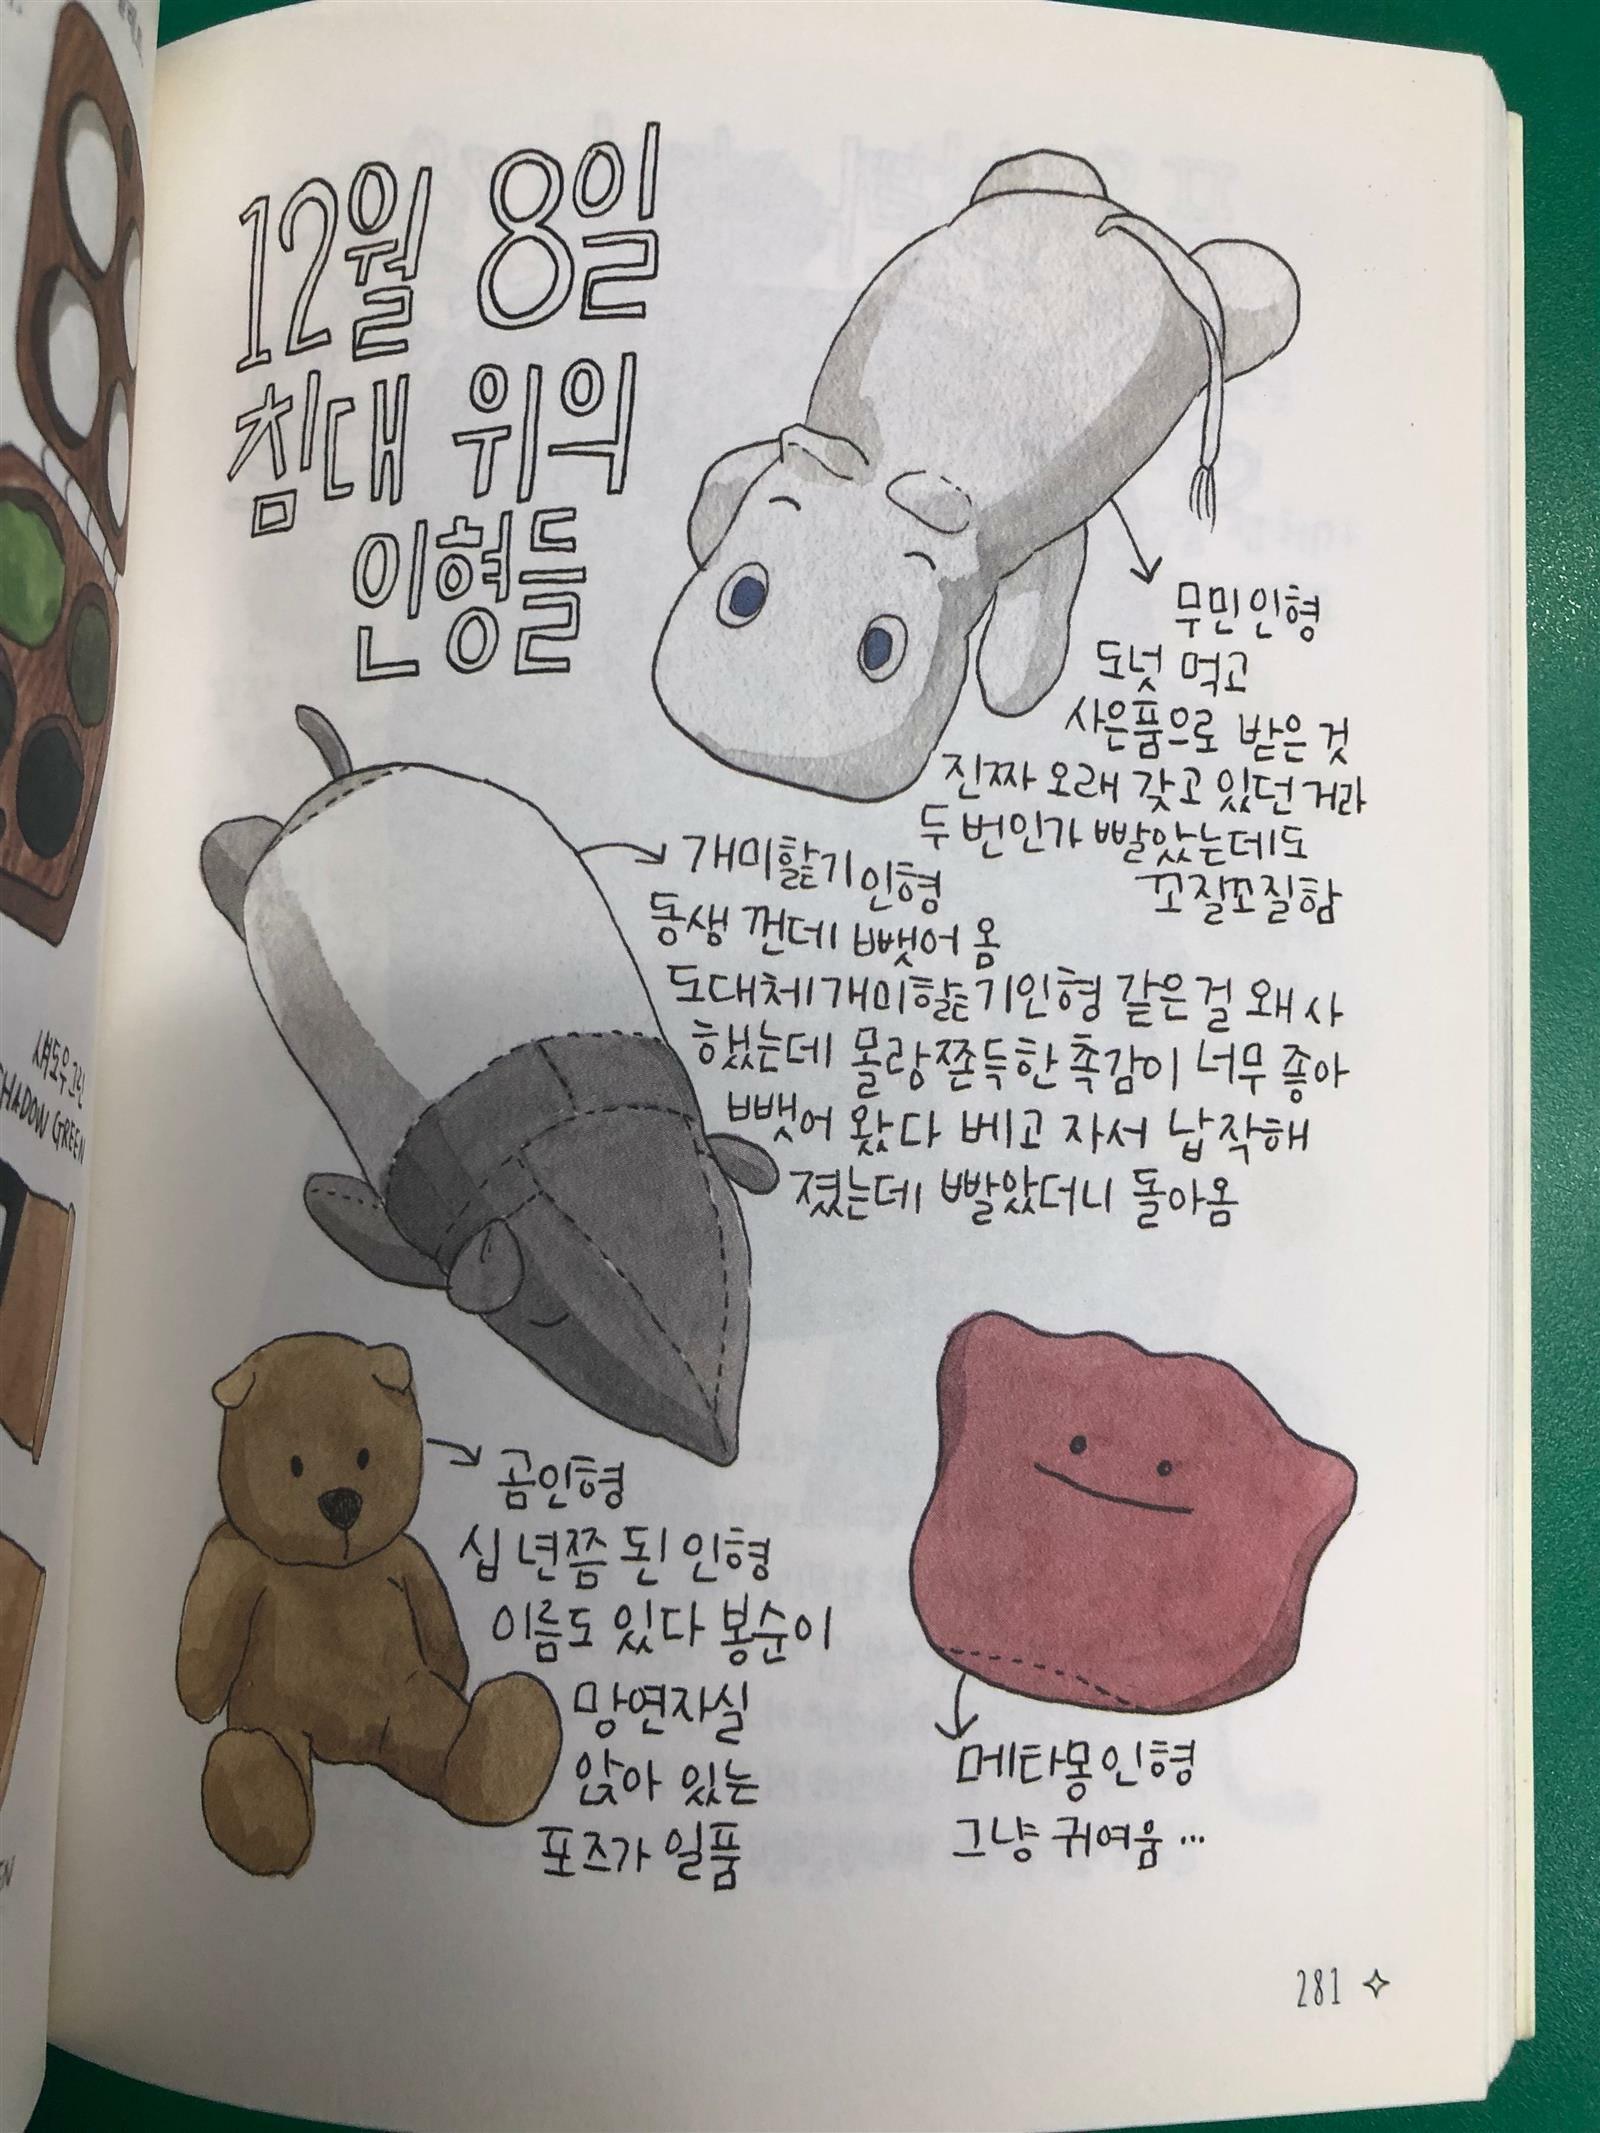 12월 8일
침대 위의
인형들
무민인형
도넛 먹고
사은품으로 받은 것
진짜 오래 갖고 있던 거라
두 번인가 빨았는데도
꼬질꼬질함
개미핥기인형
동생 껀데 뺏어 옴
도대체 개미핥기인형 같은 걸 왜 사
했는데 몰랑쫀득한 촉감이 너무 좋아
뺏어 왔다 베고 자서 납작해
졌는데 빨았더니 돌아옴
곰인형
십 년쯤 된 인형
이름도 있다 봉순이
망연자실
앉아 있는
포즈가 일품
메타몽인형
그냥 귀여움...
281
섀도우 그린
SHADOW GREEN